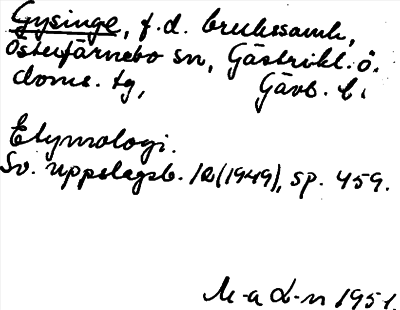 Gysinge, f.d. brukssamh.,
Österfärnebo sn, Gästrikl. ö.
doms. tg, Gävb. l.
Etymologi.
Sv. uppslagsb. 12 (1949), sp. 459.
M-a L-n 1951.